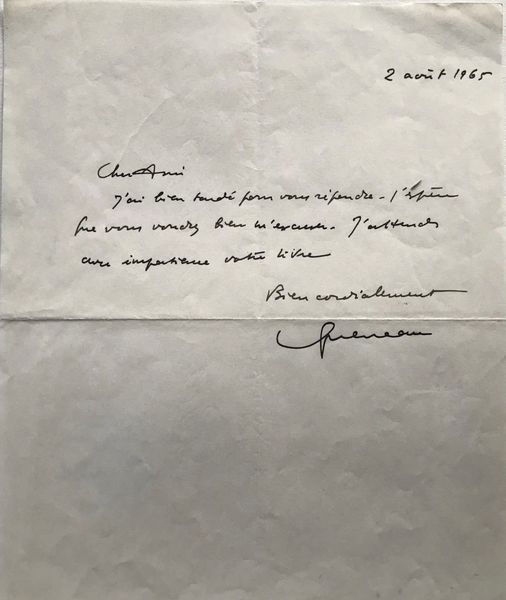 2 août 1965
Cher Ami
J'ai bien tardé pour vous répondre - J'espère
que vous voudrez bien m'excuser. J'attends
avec impatience votre livre
Bien cordialement
Queneau